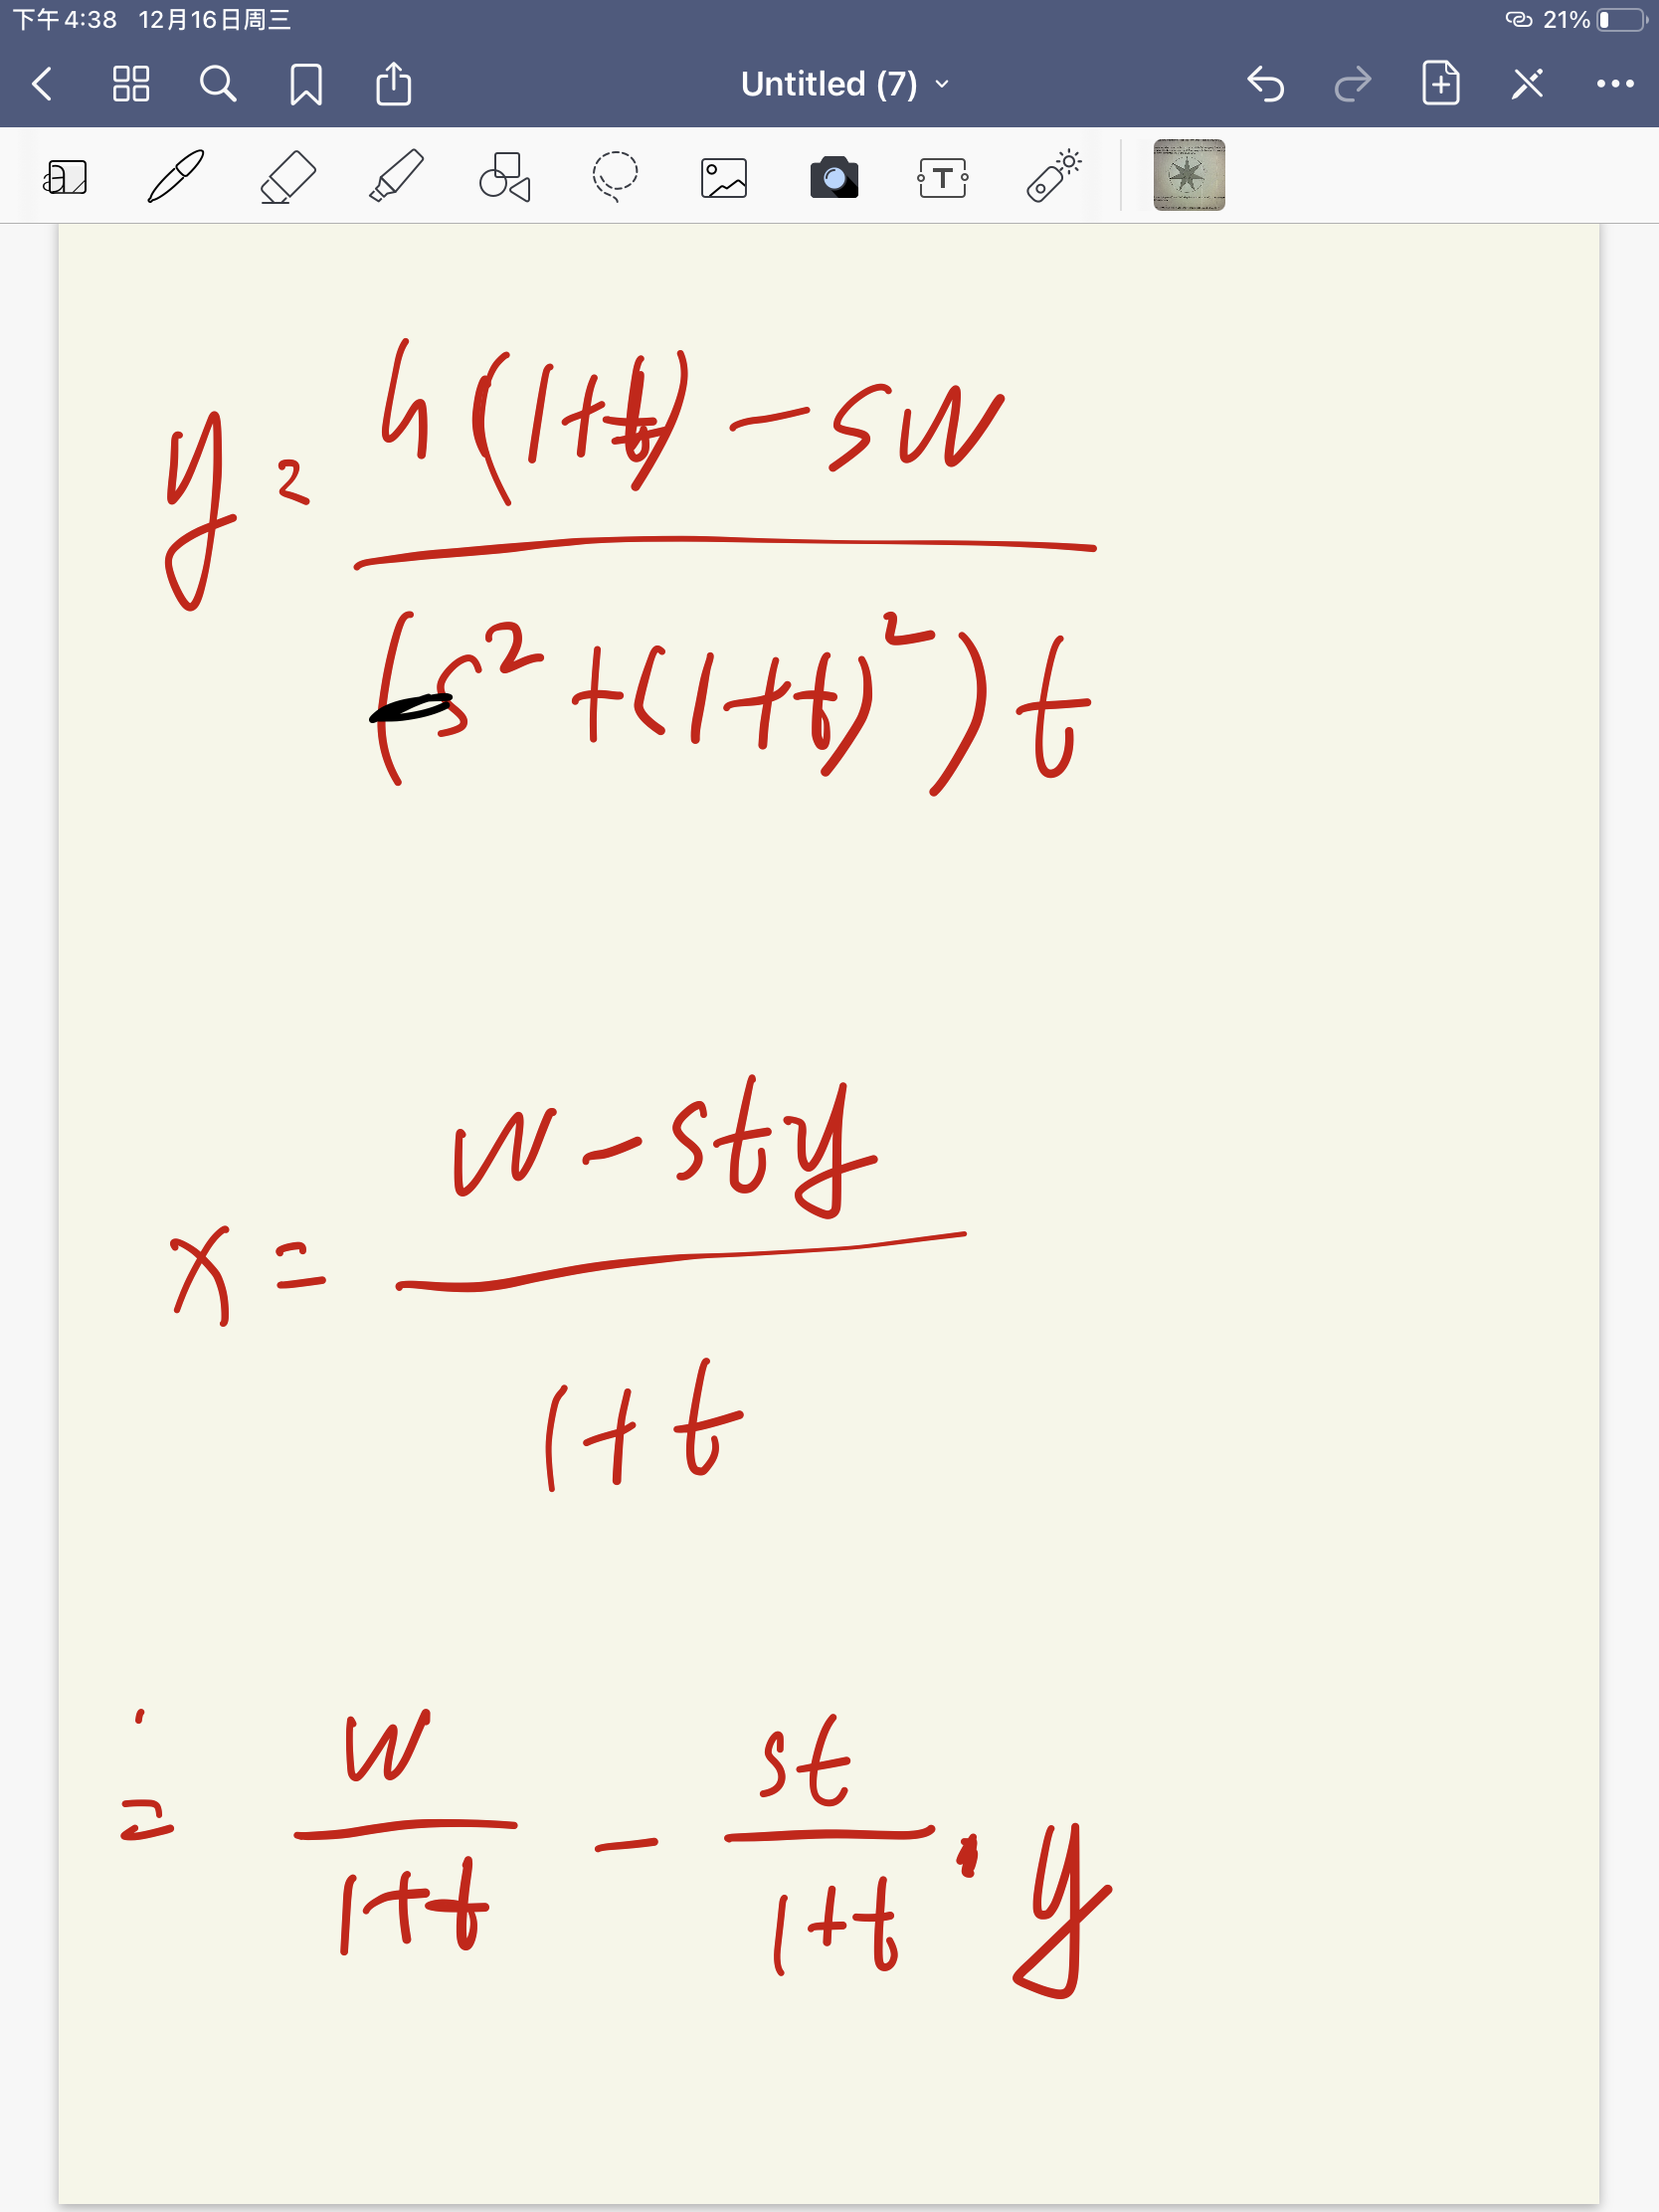 下午4:38 12月16日周三 21%
Untitled (7)
T
y = h(1+t) - sw / (s² + (1+t)²) t
x = w - sty / 1+t
= w / 1+t - st / 1+t · y